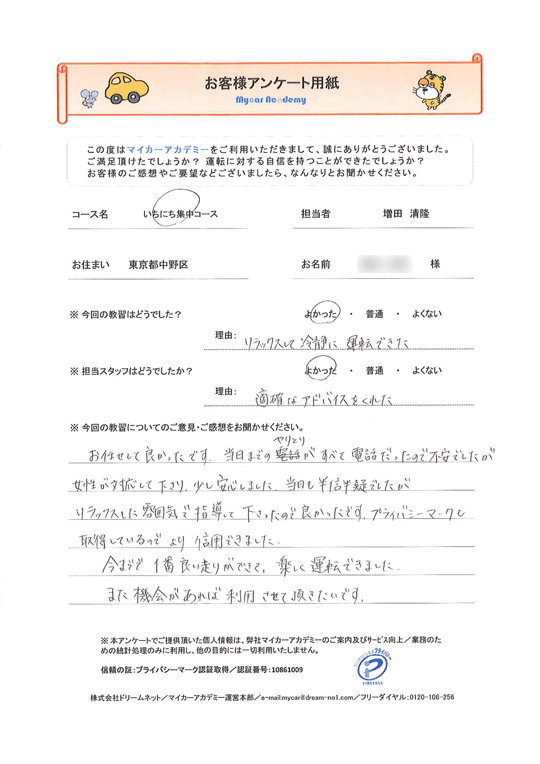 お客様アンケート用紙
Mycar Academy
この度はマイカーアカデミーをご利用いただきまして、誠にありがとうございました。
ご満足頂けたでしょうか？ 運転に対する自信を持つことができたでしょうか？
お客様のご感想やご要望などございましたら、なんなりとお聞かせください。
コース名 いちにち集中コース 担当者 増田 清隆
お住まい 東京都中野区 お名前 様
※ 今回の教習はどうでした？ よかった ・ 普通 ・ よくない
理由： リラックスして冷静に運転できた
※ 担当スタッフはどうでしたか？ よかった ・ 普通 ・ よくない
理由： 適確なアドバイスをくれた
※ 今回の教習についてのご意見・ご感想をお聞かせください。
やりとり
お任せして良かったです。当日までの電話がすべて電話だったので不安でしたが
女性が対応して下さり、少し安心しました。当日も半信半疑でしたが
リラックスした雰囲気で指導して下さったので良かったです。プライバシーマークも
取得しているのでより信用できました。
今までで1番良い走りができて、楽しく運転できました。
また機会があれば利用させて頂きたいです。
※ 本アンケートでご提供頂いた個人情報は、弊社マイカーアカデミーのご案内及びサービス向上／業務のた
めの統計処理のみに利用し、他の目的には一切利用いたしません。
信頼の証：プライバシーマーク認証取得／認証番号：10861009
株式会社ドリームネット／マイカーアカデミー運営本部／e-mail:mycar@dream-no1.com／フリーダイヤル：0120-106-256